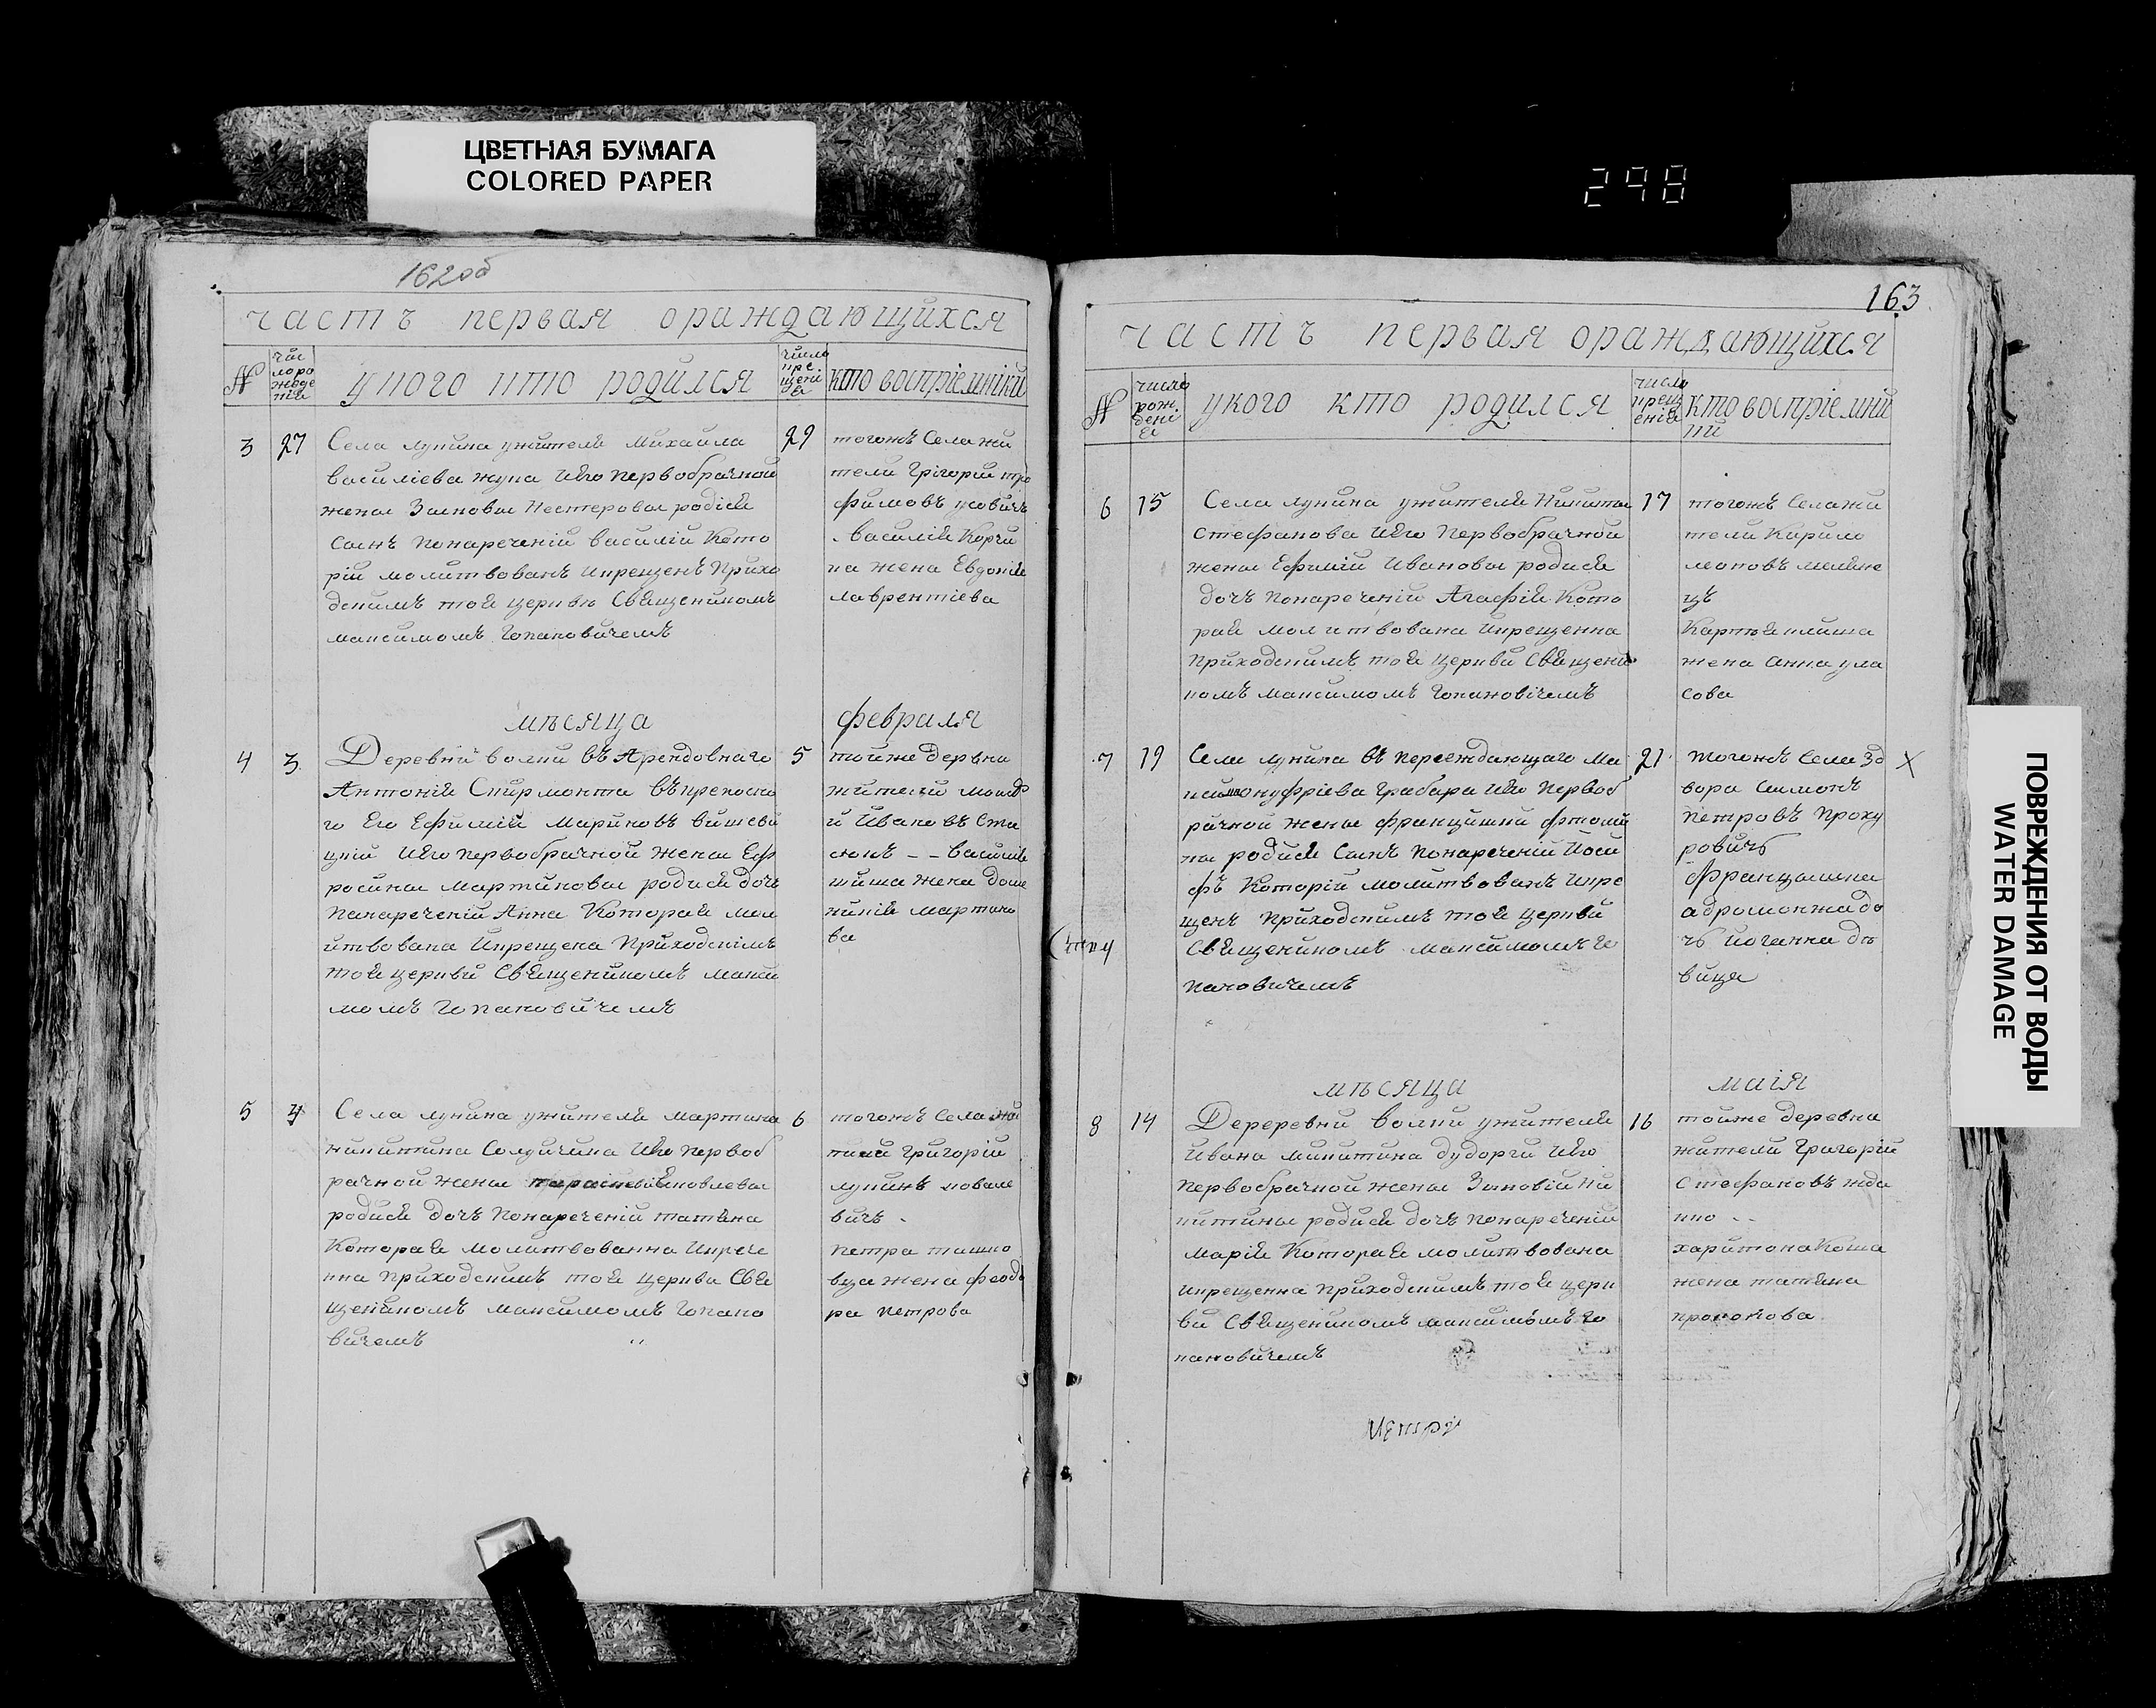 ЦВЕТНАЯ БУМАГА
COLORED PAPER
298
162об
часть первая ораждающийхся
№
числ
оро
жде
нія
у кого кто родился
число
кре
щені
я
кто воспріемніки
3 27 Села лунина ужителя Михайла
василіева жука Иего первобрачной
жены Зеновы Нестеровы родися
сынъ понареченій василій Кото
рій молитвованъ икрещенъ Прихо
дскимъ тоя церкви Священикомъ
максимомъ Гопановичемъ
29 тогожъ Села жи
тели Грігорій тро
фимовъ усовичъ
василія Корчи
на жена Евдокія
лаврентіева
мѣсяца февраля
4 3 Деревни волки въ Арендовнаго
Антонія въ крепостна
го Его
Иего первобрачной жены Еф
росины Мартиновы родися дочъ
понареченій Анна Которая мол
итвована Икрещена Приходскімъ
тоя церкви Священикомъ макси
момъ Гопановичемъ
5 тойже дервни
жители
й Ивановъ Ста
сюкъ - - василія
жена
мартино
ва
5 4 Села лунина ужителя мартина
никитина Иего первоб
рачной жены
родися дочъ понареченій татяна
Которая молитвованна Икреще
нна приходскимъ тоя церкви Свя
щеникомъ максимомъ Гопано
вичемъ
6 тогожъ Села жи
тили Григорій
ковале
вичъ
петра
вца жена феодо
ра петрова
163
часть первая ораждающихся
№
число
рож.
дені
я
укого кто родился
число
крещ
енія
кто воспріемни
ки
6 15 Села лунина ужителя Никиты
Стефанова Иего первобрачной
жены Ефимій Ивановы родися
дочъ понареченій Агафія Кото
рая молитвована икрещенна
приходскимъ тоя церкви Священи
комъ максимомъ Гопановічемъ
17 тогожъ Села жи
тели Кирило
цъ
жена Анна ула
сова
7 19 Села лунина въ переежdающаго Ма
онуфріева Грабара Иего первоб
рачной жены
родися Сынъ понареченій Йоси
фъ Которій молитвованъ Икре
щенъ приходскимъ тоя церкви
Священикомъ максимомъ Го
пановичемъ
21 тогожъ Села зд
вора Симонъ
петровъ проку
ровичъ
до
чъ Йоганна дѣ
вица
X
мѣсяца маія
8 14 Дереревни волки ужителя
Ивана Иего
первобрачной жены Зиновій Ни
китины родися дочъ понареченій
марія Которая молитвована
икрещенна приходскимъ тоя церк
ви Священикомъ максимомъ Го
пановичемъ
16 тойже деревни
жители Григорій
Стефановъ
харитона
жена татяна
ПОВРЕЖДЕНИЯ ОТ ВОДЫ
WATER DAMAGE